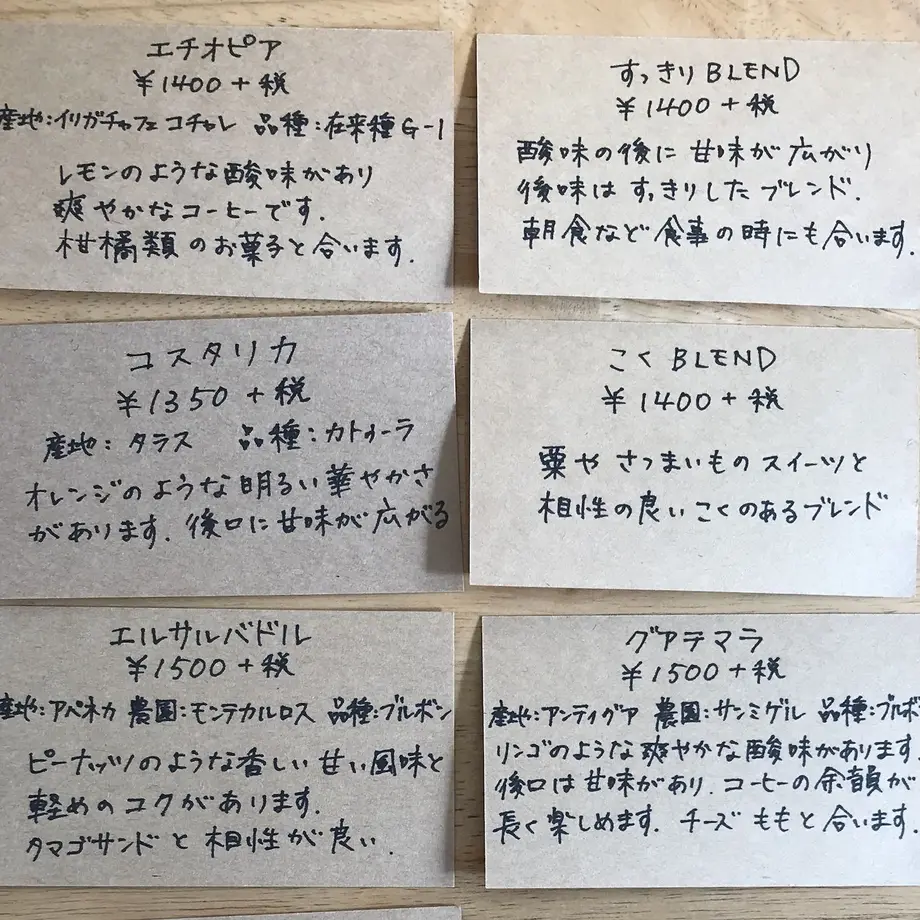 エチオピア
¥1400+税
産地:イリガチャフェ コチャレ 品種:在来種 G-1
レモンのような酸味があり
爽やかなコーヒーです.
柑橘類のお菓子と合います.
すっきり BLEND
¥1400+税
酸味の後に甘味が広がり
後味はすっきりしたブレンド.
朝食など食事の時にも合います.
コスタリカ
¥1350+税
産地:タラス 品種:カトゥーラ
オレンジのような明るい華やかさ
があります.後口に甘味が広がる
こく BLEND
¥1400+税
栗やさつまいものスイーツと
相性の良いこくのあるブレンド
エルサルバドル
¥1500+税
産地:アペネカ 農園:モンテカルロス 品種:ブルボン
ピーナッツのような香しい甘い風味と
軽めのコクがあります.
タマゴサンドと相性が良い.
グアテマラ
¥1500+税
産地:アンティグア 農園:サンミゲル 品種:ブルボ
リンゴのような爽やかな酸味があります.
後口は甘味があり.コーヒーの余韻が
長く楽しめます.チーズももと合います.